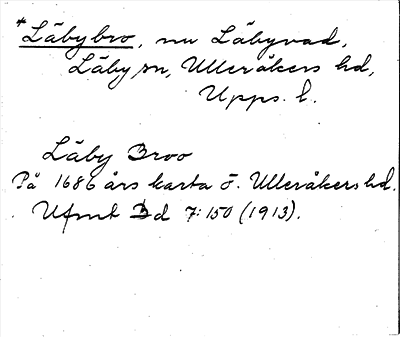 *Läbybro, nu Läbyvad,
Läby sn, Ulleråkers hd,
Upps. l.
Läby Broo
På 1686 års karta ö. Ulleråkers hd.
Ufmt Bd 7:150 (1913).